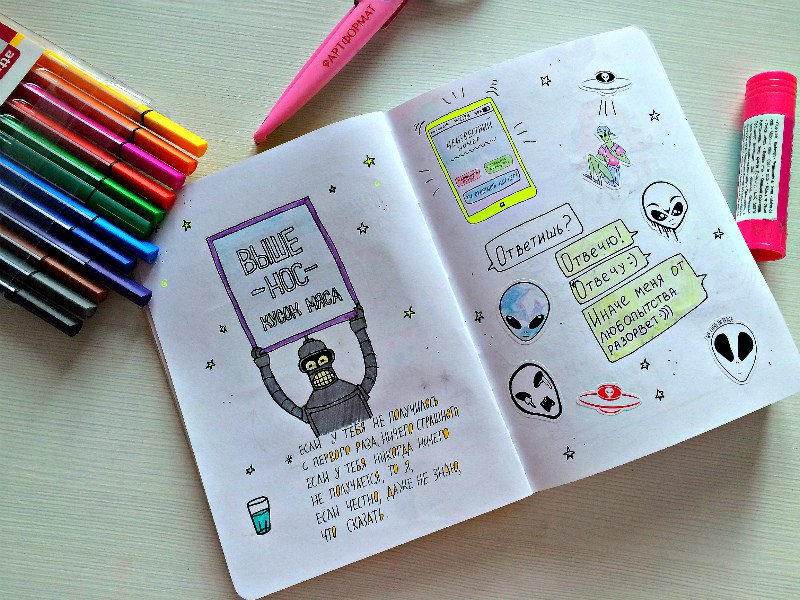 ФАРТФОРМАТ
ВЫШЕ
-НОС-
КУСОК МЯСА
* ЕСЛИ У ТЕБЯ НЕ ПОЛУЧИЛОСЬ
С ПЕРВОГО РАЗА, НИЧЕГО СТРАШНОГО
ЕСЛИ У ТЕБЯ НИКОГДА НИЧЕГО
НЕ ПОЛУЧАЕТСЯ, ТО Я,
ЕСЛИ ЧЕСТНО, ДАЖЕ НЕ ЗНАЮ,
ЧТО СКАЗАТЬ.
НОМЕР
Ответишь?
Отвечу!
Отвечу:)
Иначе меня от
любопытства
разорвёт:)))